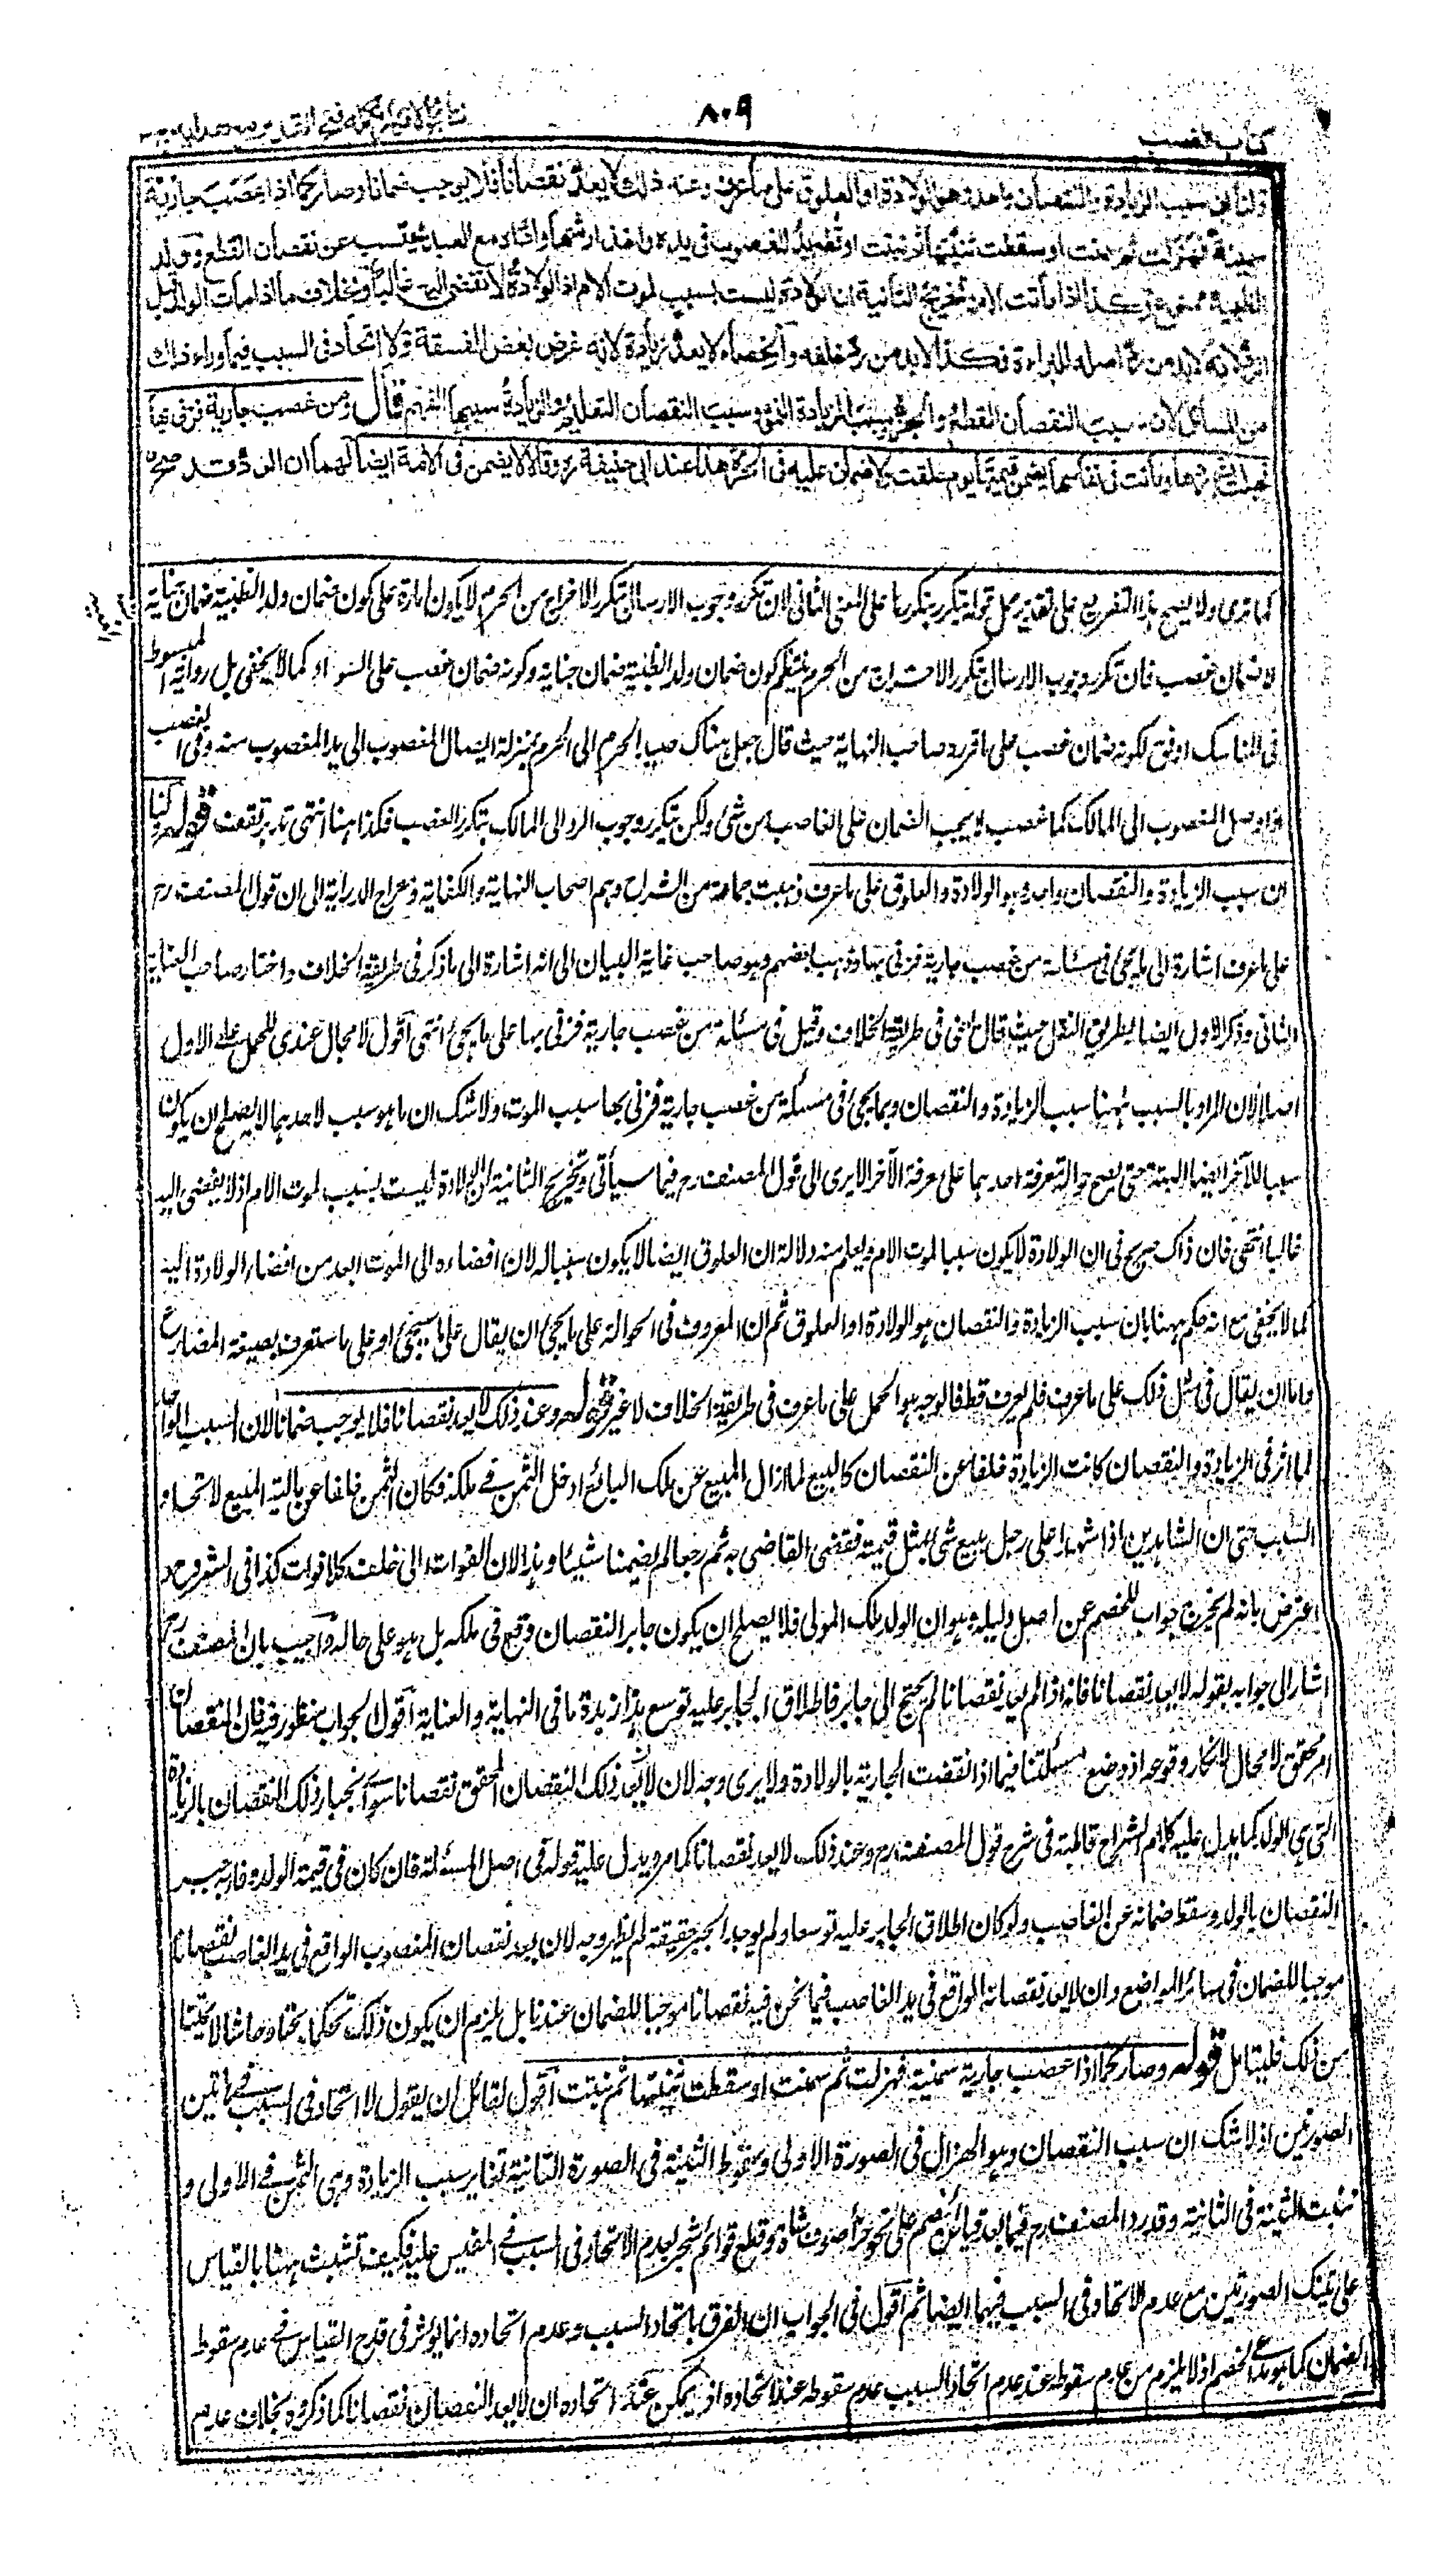 كتاب الغصب
٨٠٩
نتائج الافكار تكملة فتح القدير مع هداية
ولنا ان سبب الزيادة والنقصان واحد وهو الولادة او العلوق على ما عرف وعند ذلك لا يعد نقصانا فلا يوجب ضمانا وصار كما اذا غصب جارية
سمينة فهزلت ثم سمنت او سقطت ثنيتها ثم نبتت او قطعت يد المغصوب في يده واخذ ارشها واداه مع العبد يحتسب عن نقصان القطع وولد
الظبية ممنوع وكذا اذا ماتت الام وتخريج الثانية ان الولادة ليست بسبب لموت الام اذ الولادة لا تفضي اليه غالبا وبخلاف ما اذا مات الولد قبل
الرد لانه لا بد من رد اصله للبراءة فكذا لا بد من رد خلفه والخصاء لا يعد زيادة لانه غرض بعض الفسقة ولا اتحاد في السبب فيما وراء ذلك
من المسائل لان سبب النقصان القطع والجز وسبب الزيادة النمو وسبب النقصان التعليم والزيادة سببها الفهم قال ومن غصب جارية فزنى بها
فحبلت ثم ردها وماتت في نفاسها يضمن قيمتها يوم علقت ولا ضمان عليه في الحرة هذا عند ابي حنيفة رح وقالا لا يضمن في الامة ايضا لهما ان الرد قد صح
كما ترى ولا يصح هذا التفريع على تقدير حمل قوله يتكرر بتكررها على المعنى الثاني لان تكرر وجوب الارسال بتكرر الاخراج من الحرم لا يكون امارة على كون ضمان ولد الظبية ضمان جناية
لا ضمان غصب فان تكرر وجوب الارسال بتكرر الاخراج من الحرم ينتظم كون ضمان ولد الظبية ضمان جناية وكونه ضمان غصب على السواء كما لا يخفى بل رواية المبسوط
في المناسك اوفق لكونه ضمان غصب على ما قرره صاحب النهاية حيث قال جعل هناك صيد الحرم الى الحرم بمنزلة ايصال المغصوب الى يد المغصوب منه وفي الغصب
اذا وصل المغصوب الى المالك كما غصب لا يجب الضمان على الغاصب من شئ ولكن يتكرر وجوب الرد الى المالك بتكرر الغصب فكذا هنا انتهى تدبر تقف قوله ولنا
ان سبب الزيادة والنقصان واحد وهو الولادة والعلوق على ما عرف ذهبت جماعة من الشراح وهم اصحاب النهاية والكفاية ومعراج الدراية الى ان قول المصنف رح
على ما عرف اشارة الى ما يجئ في مسئلة من غصب جارية فزنى بها وذهب بعضهم وهو صاحب غاية البيان الى انه اشارة الى ما ذكر في طريقة الخلاف واختار صاحب العناية
الثاني وذكر الاول ايضا بطريق النقل حيث قال يعني في طريقة الخلاف وقيل في مسئلة من غصب جارية فزنى بها على ما يجئ انتهى اقول لا مجال عندي للحمل على الاول
اصلا لان المراد بالسبب ههنا سبب الزيادة والنقصان وبما يجئ في مسئلة من غصب جارية فزنى بها سبب الموت ولا شك ان ما هو سبب لاحدهما لا يصلح ان يكون
سببا للآخر ايضا البتة حتى يصح حوالة معرفة احدهما على معرفة الآخر الا يرى الى قول المصنف رح فيما سيأتي وتخريج الثانية ان الولادة ليست بسبب لموت الام اذ لا يفضي اليه
غالبا انتهى فان ذاك صريح في ان الولادة لا يكون سببا لموت الام ويعلم منه دلالة ان العلوق ايضا لا يكون سببا له لان افضاءه الى الموت ابعد من افضاء الولادة اليه
كما لا يخفى مع انه حكم ههنا بان سبب الزيادة والنقصان هو الولادة او العلوق ثم ان المعروف في الحوالة على ما يجئ ان يقال على ما سيجئ او على ما ستعرف بصيغة المضارع
واما ان يقال في مثل ذلك على ما عرف فلم يعرف قط فالوجه هو الحمل على ما عرف في طريقة الخلاف لا غير قوله وعند ذلك لا يعد نقصانا فلا يوجب ضمانا لان السبب الواحد
لما اثر في الزيادة والنقصان كانت الزيادة خلفا عن النقصان كالبيع لما ازال المبيع عن ملك البائع ادخل الثمن في ملكه فكان الثمن خلفا عن مالية المبيع لاتحاد
السبب حتى ان الشاهدين اذا شهدا على رجل ببيع شئ بمثل قيمته فقضى القاضي به ثم رجعا لم يضمنا شيئا وهذا لان الفوات الى خلف كلا فوات كذا في الشروح و
اعترض بانه لم يخرج جواب للخصم عن اصل دليله وهو ان الولد ملك المولى فلا يصلح ان يكون جابرا لنقصان وقع في ملكه بل هو على حاله واجيب بان المصنف رح
اشار الى جوابه بقوله لا يعد نقصانا فانه اذا لم يعد نقصانا لم يحتج الى جابر فاطلاق الجابر عليه توسع هذا زبدة ما في النهاية والعناية اقول الجواب منظور فيه فان النقصان
امر محقق لا مجال لانكار وقوعه اذ وضع مسئلتنا فيما اذا نقصت الجارية بالولادة ولا يرى وجه لان لا يعد ذلك النقصان المحقق نقصانا سوى انجبار ذلك النقصان بالزيادة
التي هي الولد كما يدل عليه كلام الشراح قاطبة في شرح قول المصنف رح وعند ذلك لا يعد نقصانا كما مر ويدل عليه قوله في اصل المسئلة فان كان في قيمة الولد وفاء به جبر
النقصان بالولد وسقط ضمانه عن الغاصب ولو كان اطلاق الجابر عليه توسعا ولم يوجد الجبر حقيقة لم يظهر وجه لان يعد نقصان المغصوب الواقع في يد الغاصب نقصانا
موجبا للضمان في سائر المواضع وان لا يعد نقصانه الواقع في يد الغاصب فيما نحن فيه نقصانا موجبا للضمان عندنا بل يلزم ان يكون ذلك تحكما بحتا وحاشا لائمتنا
من ذلك فليتأمل قوله وصار كما اذا غصب جارية سمينة فهزلت ثم سمنت او سقطت ثنيتها ثم نبتت اقول لقائل ان يقول لا اتحاد في السبب في هاتين
الصورتين اذ لا شك ان سبب النقصان وهو الهزال في الصورة الاولى وسقوط الثنية في الصورة الثانية تغاير سبب الزيادة وهي السمن في الاولى و
نبت الثنية في الثانية وقد رد المصنف رح فيما بعد قياس الخصم على نحو جز صوف شاة وقطع قوائم شجر بعدم الاتحاد في السبب في المقيس عليه فكيف تشبث ههنا بالقياس
على تينك الصورتين مع عدم الاتحاد في السبب فيهما ايضا ثم اقول في الجواب ان الفرق باتحاد السبب وعدم اتحاده انما يؤثر في قدح القياس في عدم سقوط
الضمان كما هو مدعى الخصم اذ لا يلزم من عدم سقوطه عند عدم اتحاد السبب عدم سقوطه عند اتحاده اذ يمكن عند اتحاده ان لا يعد النقصان نقصانا كما ذكروه بخلاف عدم